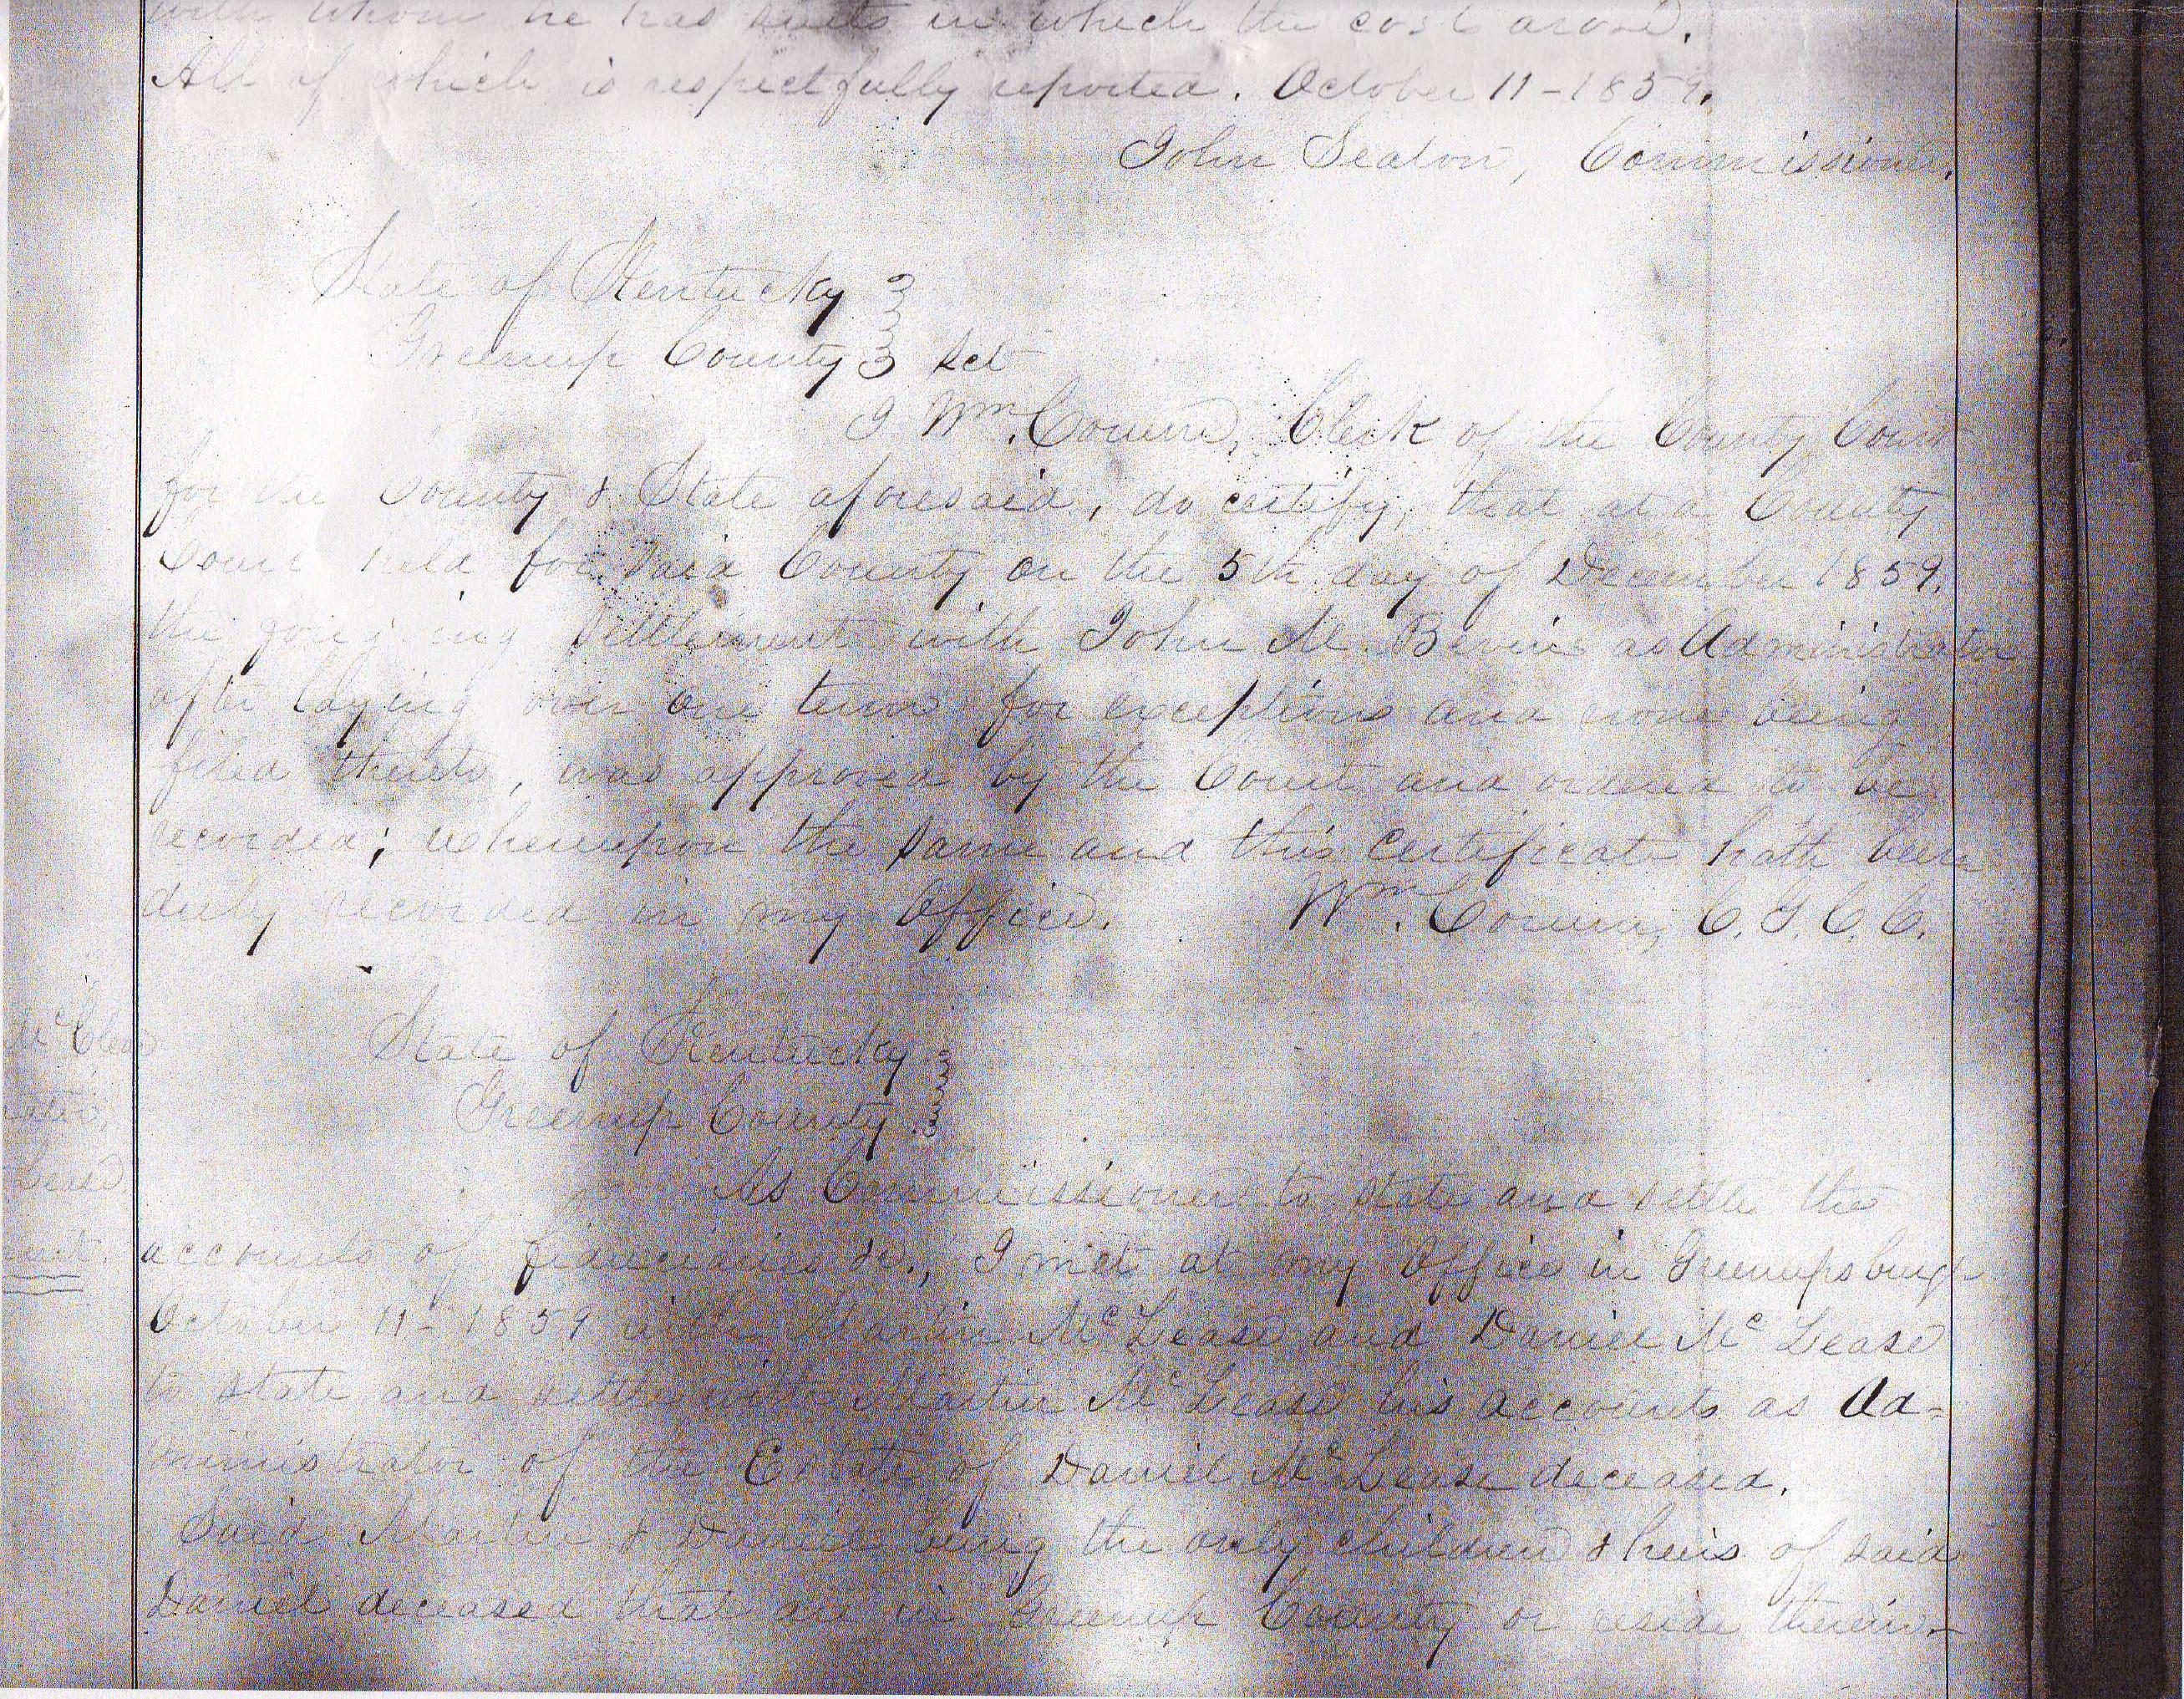 with whom he has suits in which the cost arose.
All of which is respectfully reported. October 11 - 1859.
John Seaton, Commissioner.
State of Kentucky
Greenup County Sct
I Wm. Corum, Clerk of the County Court
for the County & State aforesaid, do certify, that at a County
Court held for said County on the 5th day of December 1859.
the foregoing Settlement with John M. Bevins as Administrator
after laying over one term for exceptions and none being
filed thereto, was approved by the Court and ordered to be
recorded; whereupon the same and this certificate hath been
duly recorded in my Office. Wm. Corum, C. G. C. C.
State of Kentucky
Greenup County
As Commissioner to state and settle the
accounts of fiduciaries &c., I met at my Office in Greenupsburgh
October 11 - 1859 with Martin McLease and Daniel McLease
to state and settle with Martin McLease his accounts as Ad=
ministrator of the Estate of Daniel McLease deceased.
Said Martin & Daniel being the only children & heirs of said
Daniel deceased that are in Greenup County or reside therein.